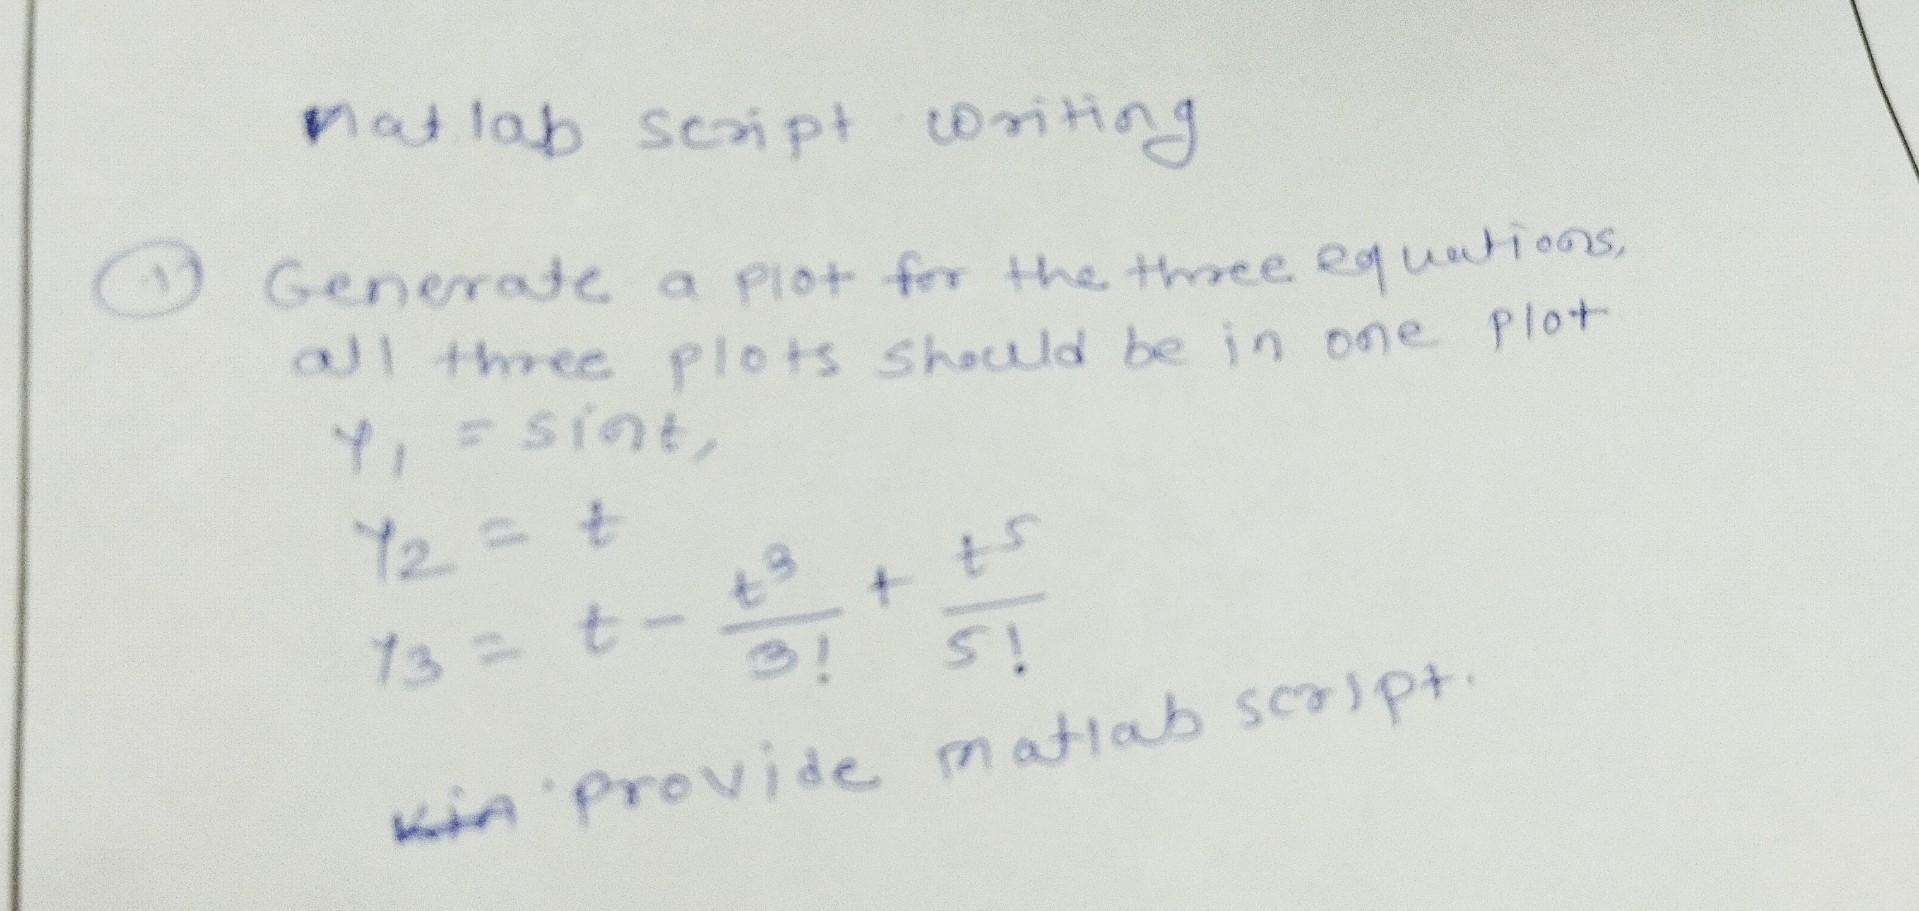 Matlab script writing
① Generate a plot for the three equations,
all three plots should be in one plot
Y₁ = sint,
Y₂ = t
Y₃ = t - t³/3! + t⁵/5!
provide matlab script.